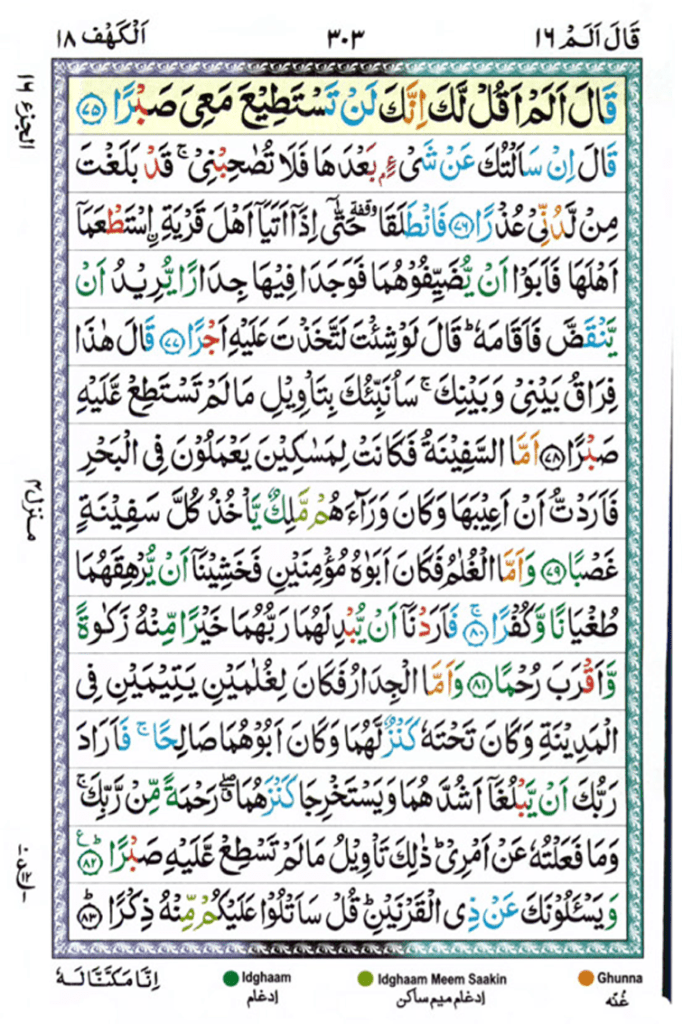 قَالَ اَلَمْ ١٦
٣٠٣
اَلْكَهْف ١٨
الجزء ١٦
قَالَ اَلَمْ اَقُلْ لَّكَ اِنَّكَ لَنْ تَسْتَطِيْعَ مَعِىَ صَبْرًا ﴿٧٥﴾
قَالَ اِنْ سَاَلْتُكَ عَنْ شَىْءٍۭ بَعْدَهَا فَلَا تُصٰحِبْنِىْ ۚ قَدْ بَلَغْتَ
مِنْ لَّدُنِّىْ عُذْرًا ﴿٧٦﴾ فَانْطَلَقَا ۥ وقفة حَتّٰۤى اِذَاۤ اَتَيَاۤ اَهْلَ قَرْيَةِ ۨاسْتَطْعَمَاۤ
اَهْلَهَا فَاَبَوْا اَنْ يُّضَيِّفُوْهُمَا فَوَجَدَا فِيْهَا جِدَارًا يُّرِيْدُ اَنْ
يَّنْقَضَّ فَاَقَامَهٗ ؕ قَالَ لَوْ شِئْتَ لَتَّخَذْتَ عَلَيْهِ اَجْرًا ﴿٧٧﴾ قَالَ هٰذَا
فِرَاقُ بَيْنِىْ وَبَيْنِكَ ۚ سَاُنَبِّئُكَ بِتَاْوِيْلِ مَا لَمْ تَسْتَطِعْ عَّلَيْهِ
صَبْرًا ﴿٧٨﴾ اَمَّا السَّفِيْنَةُ فَكَانَتْ لِمَسٰكِيْنَ يَعْمَلُوْنَ فِى الْبَحْرِ
منزل ٤
فَاَرَدْتُّ اَنْ اَعِيْبَهَا وَكَانَ وَرَآءَهُمْ مَّلِكٌ يَّاْخُذُ كُلَّ سَفِيْنَةٍ
غَصْبًا ﴿٧٩﴾ وَاَمَّا الْغُلٰمُ فَكَانَ اَبَوٰهُ مُؤْمِنَيْنِ فَخَشِيْنَاۤ اَنْ يُّرْهِقَهُمَا
طُغْيَانًا وَّكُفْرًا ۚ ﴿٨٠﴾ فَاَرَدْنَاۤ اَنْ يُّبْدِلَهُمَا رَبُّهُمَا خَيْرًا مِّنْهُ زَكٰوةً
وَّاَقْرَبَ رُحْمًا ﴿٨١﴾ وَاَمَّا الْجِدَارُ فَكَانَ لِغُلٰمَيْنِ يَتِيْمَيْنِ فِى
الْمَدِيْنَةِ وَكَانَ تَحْتَهٗ كَنْزٌ لَّهُمَا وَكَانَ اَبُوْهُمَا صَالِحًا ۚ فَاَرَادَ
رَبُّكَ اَنْ يَّبْلُغَاۤ اَشُدَّهُمَا وَيَسْتَخْرِجَا كَنْزَهُمَا ۖ رَحْمَةً مِّنْ رَّبِّكَ ۚ
وَمَا فَعَلْتُهٗ عَنْ اَمْرِىْ ؕ ذٰلِكَ تَاْوِيْلُ مَا لَمْ تَسْطِعْ عَّلَيْهِ صَبْرًا ؕ ﴿٨٢﴾ ع
وَيَسْـَٔلُوْنَكَ عَنْ ذِى الْقَرْنَيْنِ ؕ قُلْ سَاَتْلُوْا عَلَيْكُمْ مِّنْهُ ذِكْرًا ؕ ﴿٨٣﴾
اِنَّا مَكَّنَّا لَهٗ
Idghaam
ادغام
Idghaam Meem Saakin
ادغام میم ساکن
Ghunna
غُنّه